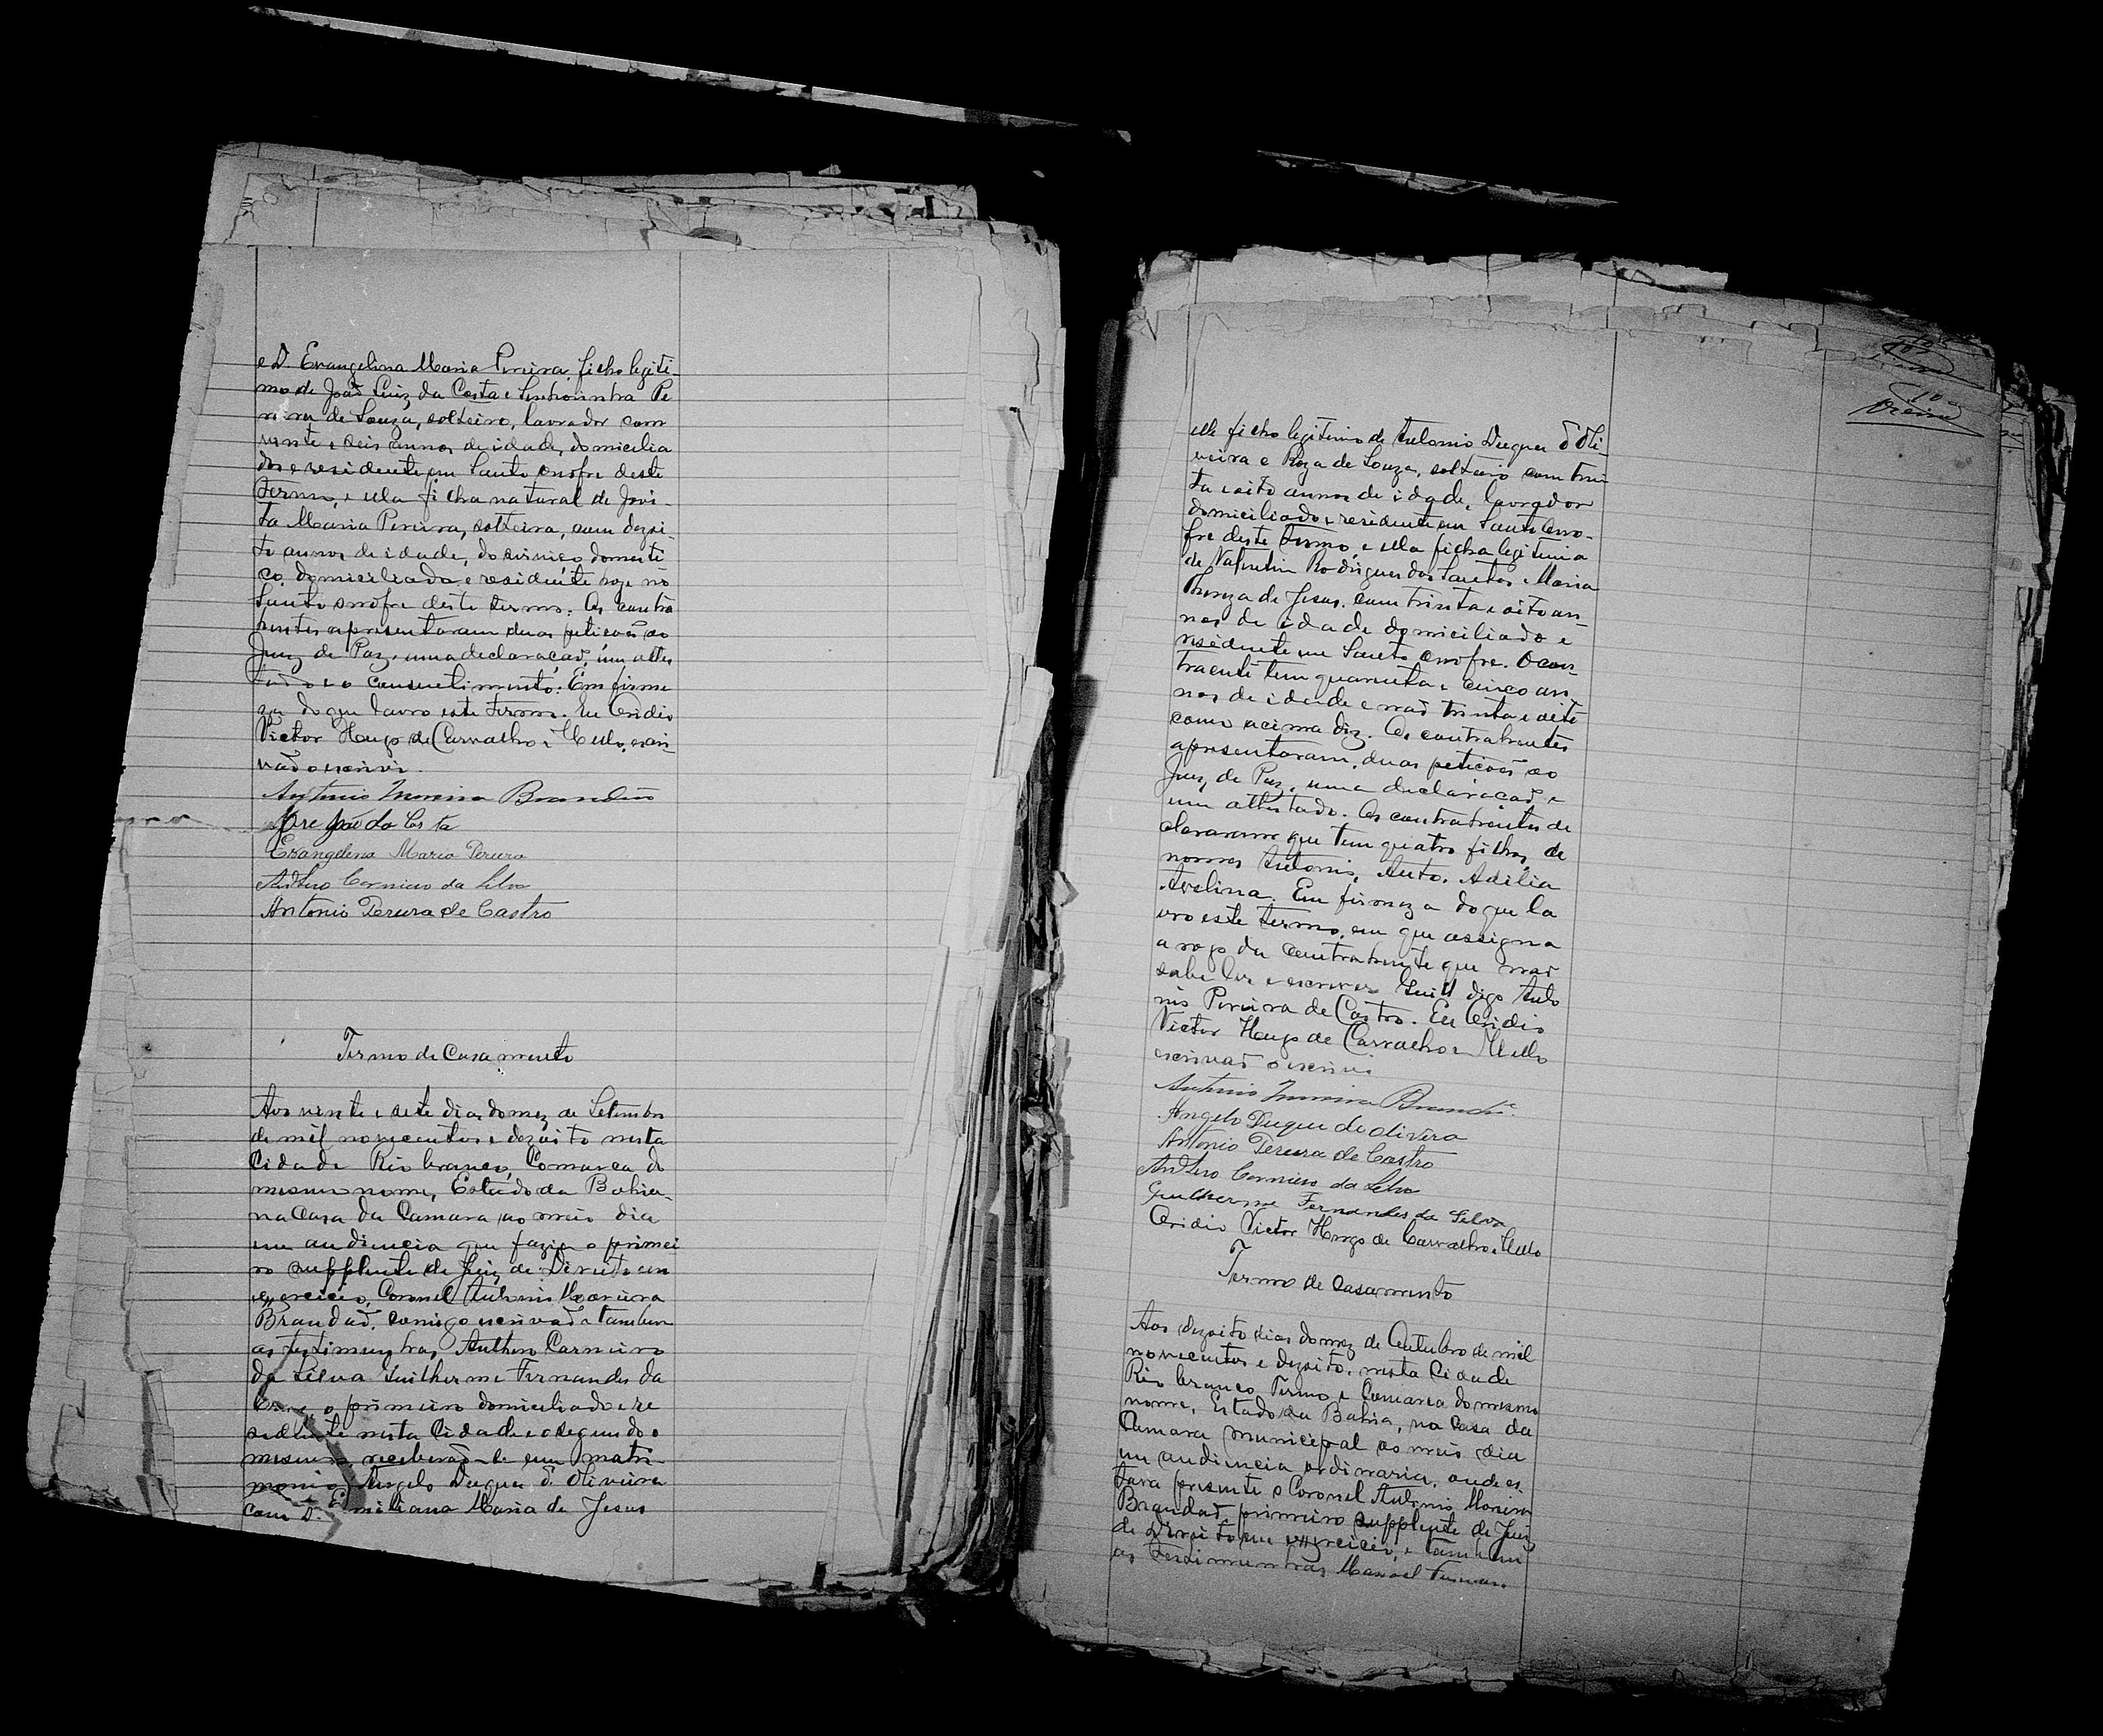 e D. Evangelina Maria Pereira, ficho legiti-
mo de João Luiz da Costa e Senhorinha Pe
reira de Souza, solteiro, lavrador com
vinte e seis annos de idade, domicilia
do e residente em Santo Onofre deste
Termo, e ella ficha natural de Jovi-
ta Maria Pereira, solteira, com dezoi-
to annos de idade, do serviço domesti-
co, domiciliada e residente hoje no
Santo Onofre deste termo. Os contra
hentes apresentaram duas petições ao
Juiz de Paz, uma declaração, um attes
tado e o consentimento. Em firme
za do que lavro este termo. Eu Ovidio
Victor Hugo de Carvalho e Mello, escri-
vão o escrivi.
Antonio Moreira Brandão
José João da Costa
Evangelina Maria Pereira
Anthero Carneiro da Silva
Antonio Pereira de Castro
Termo de Casamento
Aos vinte e sete dias do mez de Setembro
de mil novecentos e dezoito nesta
Cidade Rio branco, Comarca do
mesmo nome, Estado da Bahia,
na Casa da Camara ao meio dia
em audiencia que fazia o primei
ro supplente de Juiz de Direito em
exercicio, Coronel Antonio Moreira
Brandão, comigo escrivão e tambem
as testimunhas Anthero Carneiro
da Silva Guilherme Fernandes da
o primeiro domiciliado e re
sidente nesta Cidade e o segundo o
mesmo, receberão-se em matri-
monio, Angelo Duque d'Oliveira
com D. Emiliana Maria de Jesus
elle ficho legitimo de Antonio Duque d'Oli-
veira e Roza de Souza, solteiro com trin
ta e oito annos de idade, lavrador
domiciliado e residente em Santo Ono-
fre deste Termo, e ella ficha legitima
de Valentim Rodrigues dos Santos e Maria
de Jesus, com trinta e oito an-
nos de idade domiciliado e
residente em Santo Onofre. O con-
traente tem quarenta e cinco an-
nos de idade e não trinta e oito
como acima diz. Os contrahentes
apresentaram duas petições ao
Juiz de Paz, uma declaração e
um attestado. Os contrahentes de
claravam que tem quatro filhos de
nomes Antonio, Auto, Adilia
Avelina. Em firmeza do que la
vro este termo, em que assigna
a rogo da contrahente que não
sabe ler e escrever Guilh digo Anto
nio Pereira de Castro. Eu Ovidio
Victor Hugo de Carvalho e Mello
escrivão o escrivi
Antonio Moreira Brandão
Angelo Duque de olivera
Antonio Pereira de Castro
Anthero Carneiro da Silva
Guilherme Fernandes da Silva
Ovidio Victor Hugo de Carvalho e Mello
Termo de Casamento
Aos dezoito dias do mez de Outubro de mil
novecentos e dezoito, nesta Cidade
Rio branco Termo e Comarca do mesmo
nome, Estado da Bahia, na Casa da
Camara Municipal ao meio dia
em audiencia ordinaria, onde es-
tava presente o Coronel Antonio Moreira
Brandão, primeiro supplente de Juiz
de Direito em exercicio, e tambem
as Testimunhas Manoel